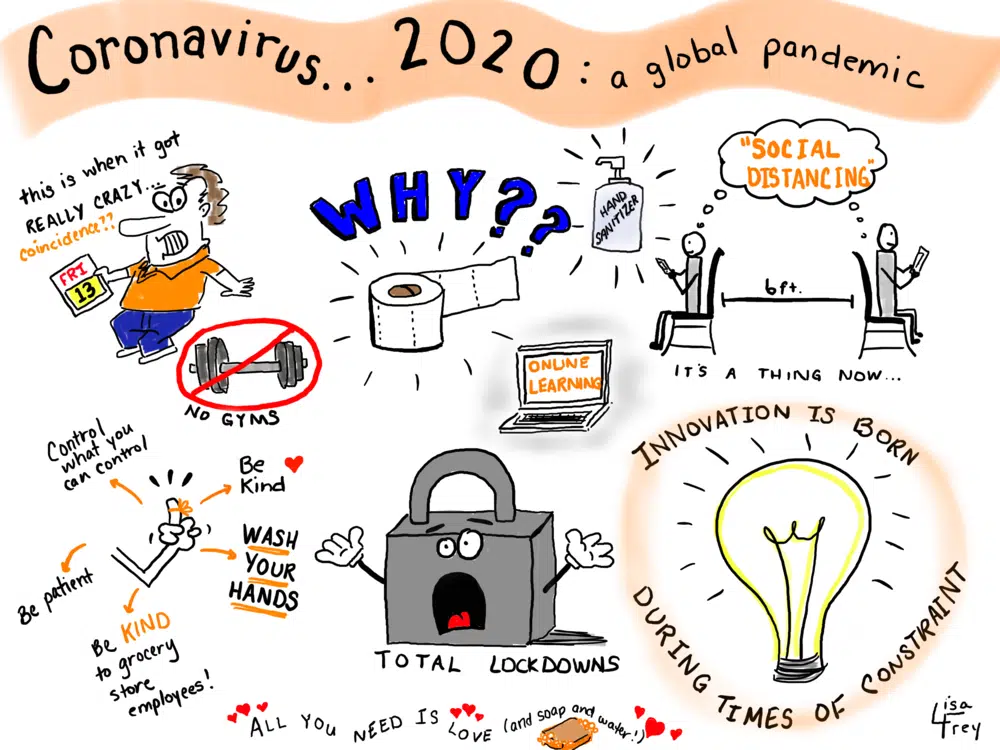 Coronavirus... 2020: a global pandemic
this is when it got
REALLY CRAZY...
coincidence??
FRI
13
WHY??
HAND
SANITIZER
"SOCIAL
DISTANCING"
6ft.
IT'S A THING NOW...
NO GYMS
ONLINE
LEARNING
Control
what you
can control
Be
Kind
WASH
YOUR
HANDS
Be patient
Be KIND
to grocery
store
employees!
TOTAL LOCKDOWNS
INNOVATION IS BORN
DURING TIMES OF CONSTRAINT
ALL YOU NEED IS LOVE (and soap and water!)
Lisa
Frey